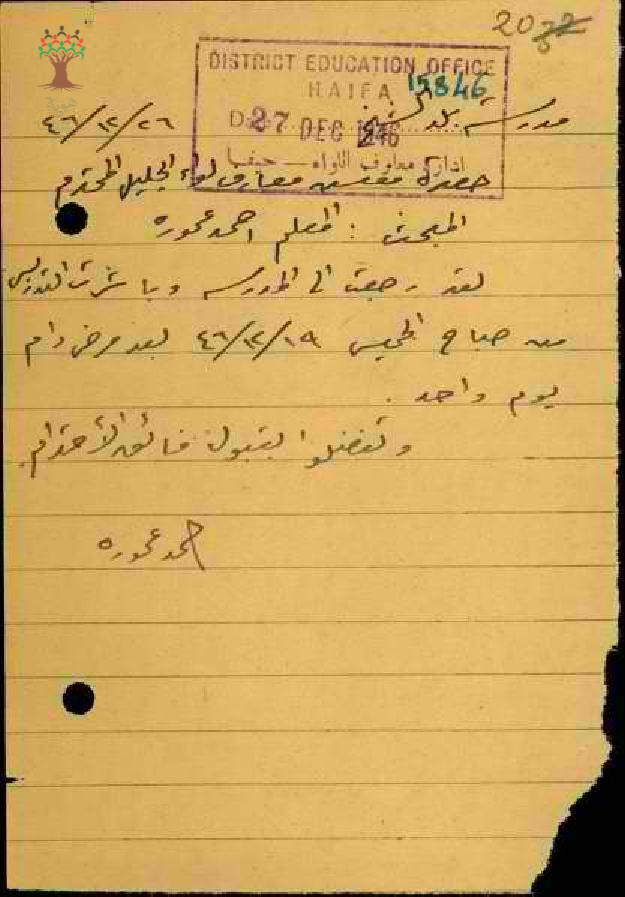 2032
DISTRICT EDUCATION OFFICE
HAIFA
15846
Date 27 DEC 1946
ادارة معارف اللواء — حيفا
مدرسة بلد الشيخ ٤٦/١٢/٢٦
حضرة مفتش معارف لواء الجليل المحترم
المبحث : المعلم احمد عموره
لقد رجعت الى المدرسه وباشرت التدريس
من صباح الخميس ٤٦/١٢/١٩ بعد مرض دام
يوم واحد .
وتفضلوا بقبول فائق الأحترام.
احمد عموره